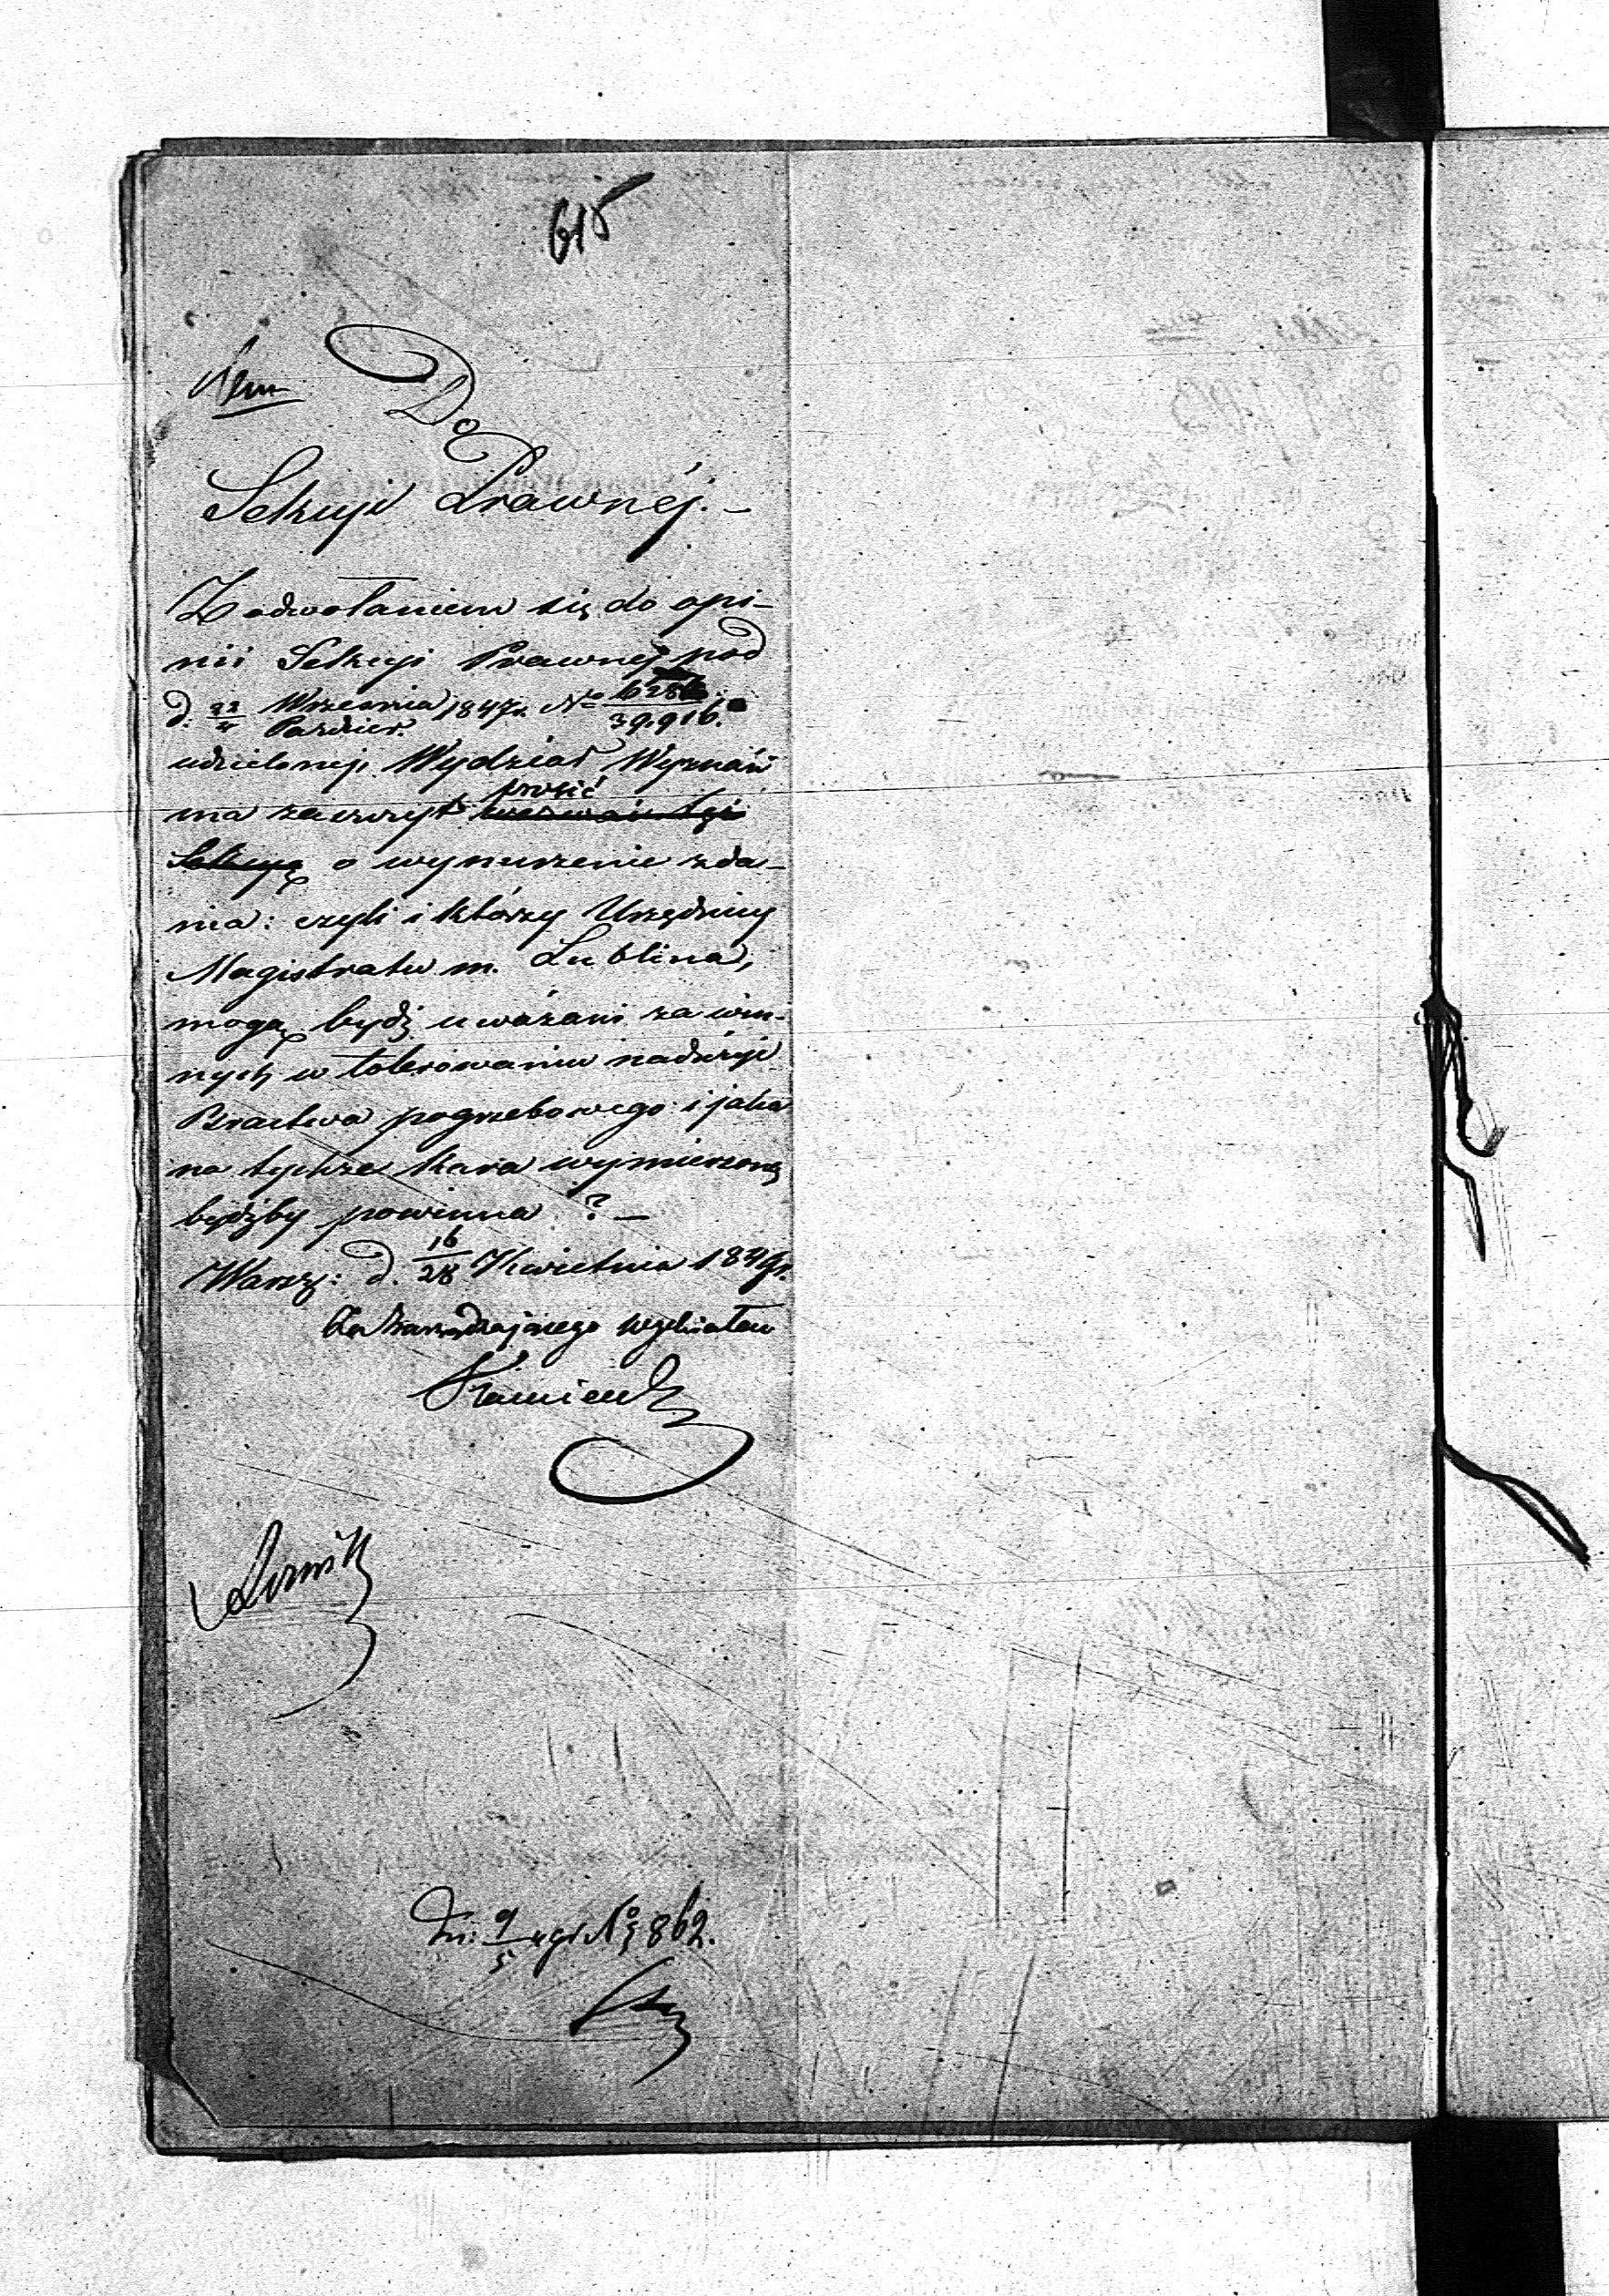 615
Do
Sekcyi Prawnéj. –
Z odwołaniem się do opi-
nii Sekcyi Prawnej pod
d. 22/4 Września/Paździer. 1847 r. No 6286/39,916.
udzielonej, Wydział Wyznań
ma zaszczyt prosić wezwać tęż
Sekcyą o wynurzenie zda-
nia: czyli i którzy Urzędnicy
Magistratu m. Lublina,
mogą bydź uważani za win-
nych w tolerowaniu nadużyć
Bractwa pogrzebowego i jaka
na tychże kara wymierzoną
bydźby powinna? –
Warsz: d. 16/28 Kwietnia 1849 r.
Za Zarządzającego Wydziałem
9/5 No 862.